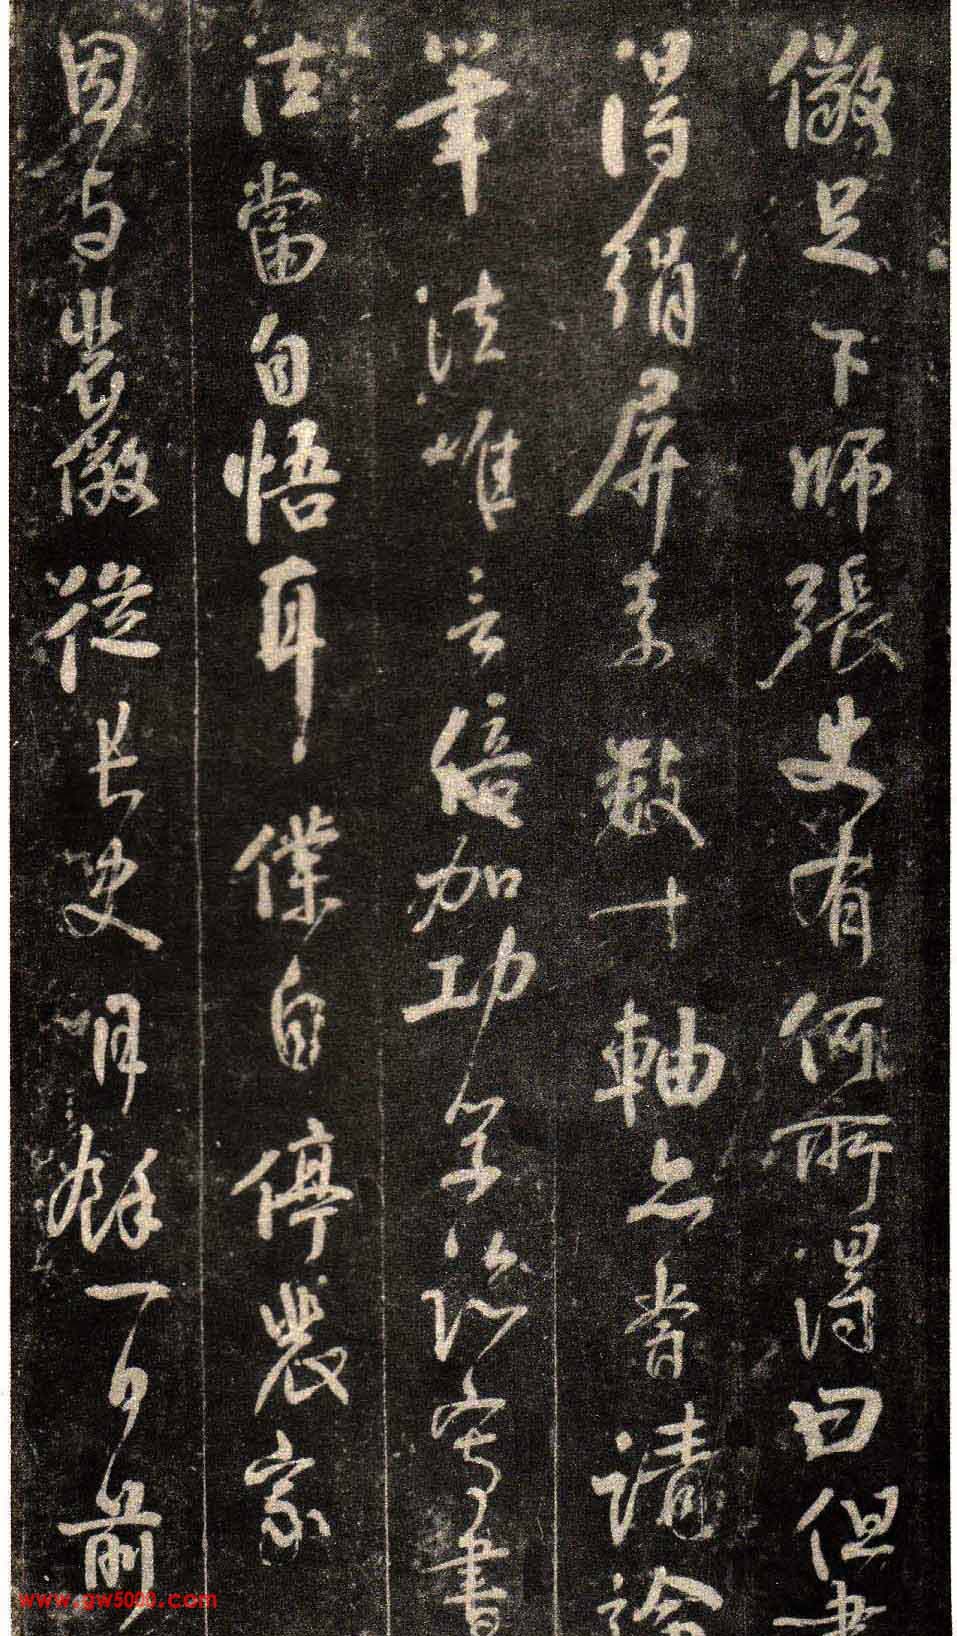 儆足下師張史有何所得曰但書
得絹屏素數十軸亦嘗請論
筆法唯言倍加功學臨寫書
法當自悟耳僕自停裴家
因與裴儆從長史月餘一日前
www.gw5000.com